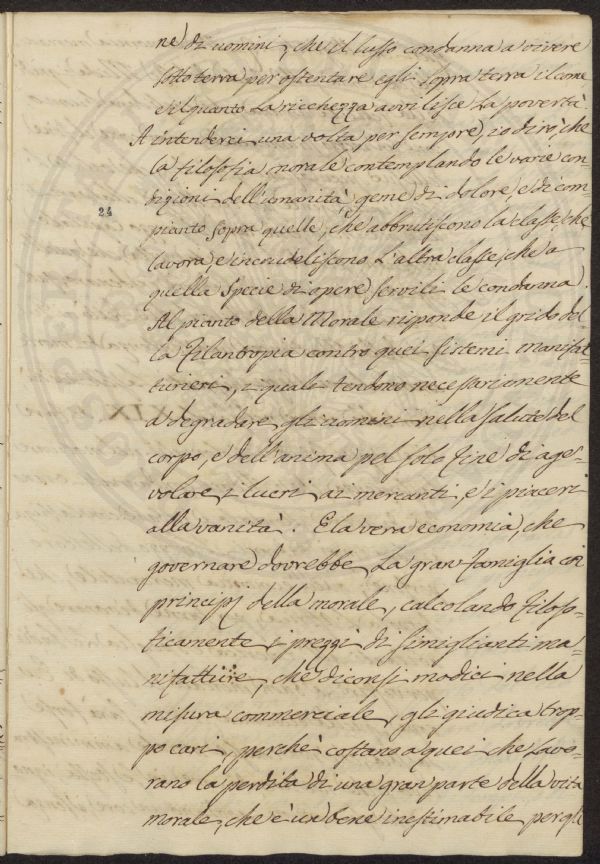 ne di uomini, che il lusso condanna a vivere
sotto terra per ostentare egli sopra terra il come
e il quanto la ricchezza avvilisce la povertà.
A intenderci una volta per sempre, io dirò, che
la filosofia morale contemplando le varie con-
dizioni dell'umanità geme di dolore, e di com-
24
pianto sopra quelle, che abbrutiscono la classe, che
lavora, e incrudeliscono l'altra classe, che a
quella specie di opere servili le condanna.
Al pianto della Morale risponde il grido del-
la Filantropia contro quei sistemi manifat-
turieri, i quali tendono necessariamente
a degradare gli uomini nella salute del
corpo, e dell'anima pel solo fine di age-
volare i lucri ai mercanti, e i piaceri
alla vanità. E la vera economia, che
governare dovrebbe la gran famiglia coi
principj della morale, calcolando filoso-
ficamente i prezzi di simiglianti ma-
nifatture, che diconsi modici nella
misura commerciale, gli giudica trop-
po cari, perchè costano a quei che lavo-
rano la perdita di una gran parte della vita
morale, che è un bene inestimabile per gli